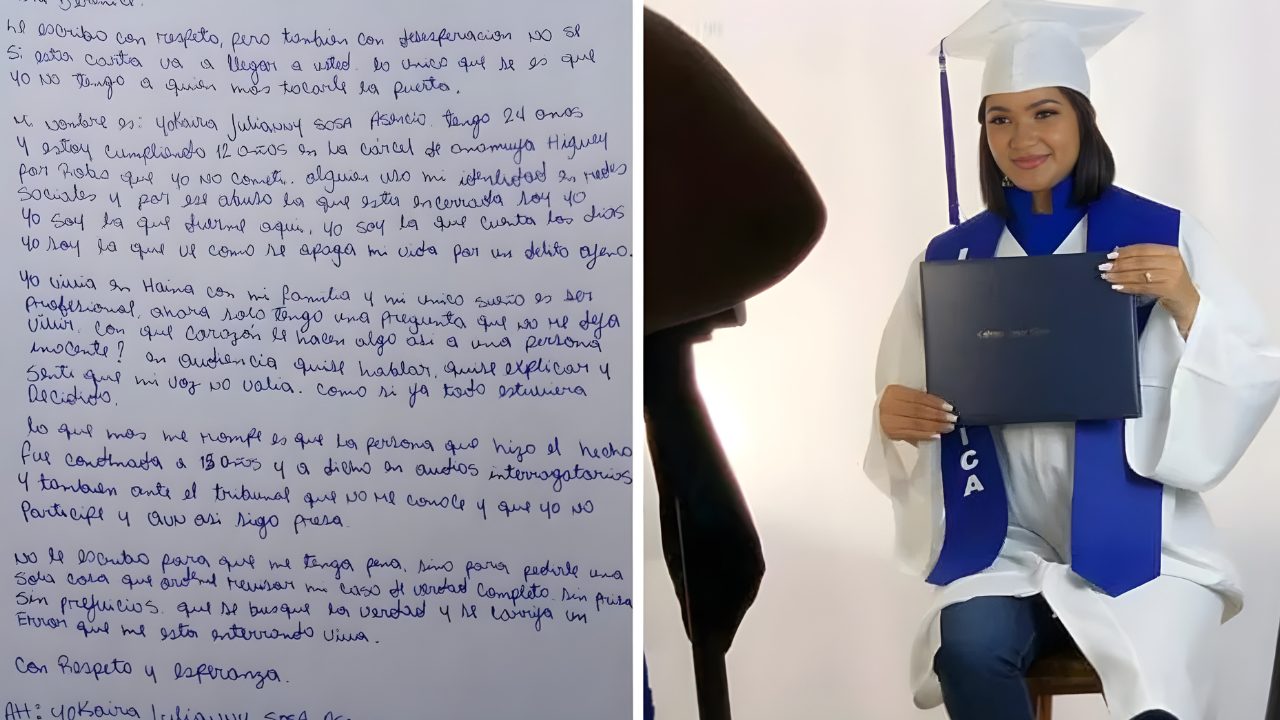 Le escribo con respeto, pero tambien con desesperacion no se
Si esta carta va a llegar a usted. lo unico que se es que
yo no tengo a quien mas tocarle la puerta.
Mi nombre es: Yokaira Julianny Sosa Asencio. tengo 24 años
y estoy cumpliendo 12 años en la cárcel de anamuya Higuey
por Robos que yo no cometi. alguien uso mi identidad en redes
sociales y por ese abuso la que esta encerrada soy yo
yo soy la que duerme aqui, yo soy la que cuenta los dias
yo soy la que ve como se apaga mi vida por un delito ajeno.
yo vivia en Haina con mi familia y mi unico sueño es ser
profesional, ahora solo tengo una pregunta que no me deja
vivir. Con que corazón le hacen algo asi a una persona
inocente? en audiencia quise hablar, quise explicar y
Senti que mi voz no valia. como si ya todo estuviera
Decidido.
lo que mas me rompe es que la persona que hizo el hecho
fue condenada a 15 años y a dicho en audios interrogatorios
y tambien ante el tribunal que no me conoce y que yo no
Participe y aun asi sigo presa.
no le escribo para que me tenga pena, sino para pedirle una
sola cosa que ordene revisar mi caso de verdad completo. sin prisa
sin prejuicios. que se busque la verdad y se corrija un
Error que me esta enterrando viva.
Con Respeto y esperanza.
Att: Yokaira Julianny Sosa
ICA